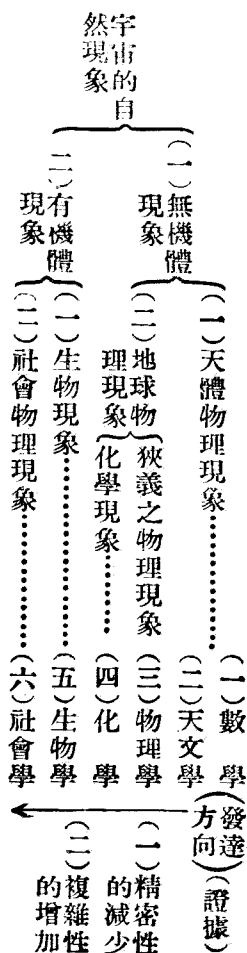 宇宙的自
然現象
(一)無機體
現象
(二)有機體
現象
(一)天體物理現象………
(二)地球物
理現象
狹義之物理現象
化學現象……
(一)生物現象………
(二)社會物理現象………
(一)數學
(二)天文學
(三)物理學
(四)化學
(五)生物學
(六)社會學
(發達
方向)
(證據)
(一)精密性
的減少
(二)複雜性
的增加